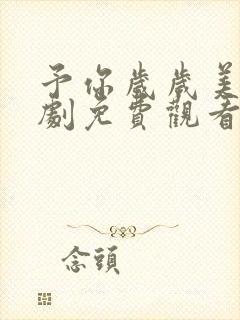 予你歲歲美
劇免費觀看
念頭